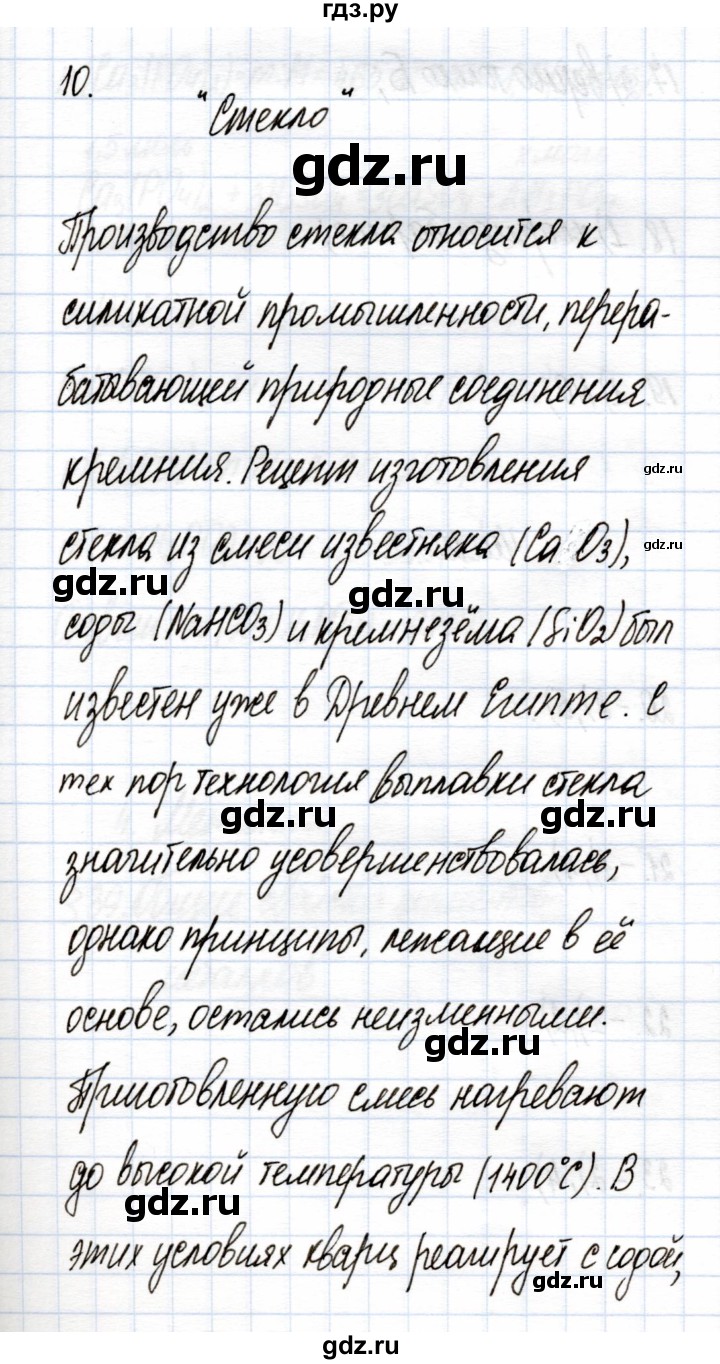 гдз.ру
10.
"Стекло"
gdz.ru
Производство стекла относится к
силикатной промышленности, перера-
батывающей природные соединения
кремния. Рецепт изготовления
gdz.ru
стекла из смеси известняка (Ca O3),
gdz.ru
gdz.ru
gdz.ru
соды (NaHCO3) и кремнезёма (SiO2) был
известен уже в Древнем Египте. С
тех пор технология выплавки стекла
gdz.ru
gdz.ru
значительно усовершенствовалась,
однако принципы, лежащие в её
основе, остались неизменными.
gdz.ru
Приготовленную смесь нагревают
до высокой температуры (1400°C). В
gdz.ru
этих условиях кварц реагирует с содой,
gdz.ru
gdz.ru